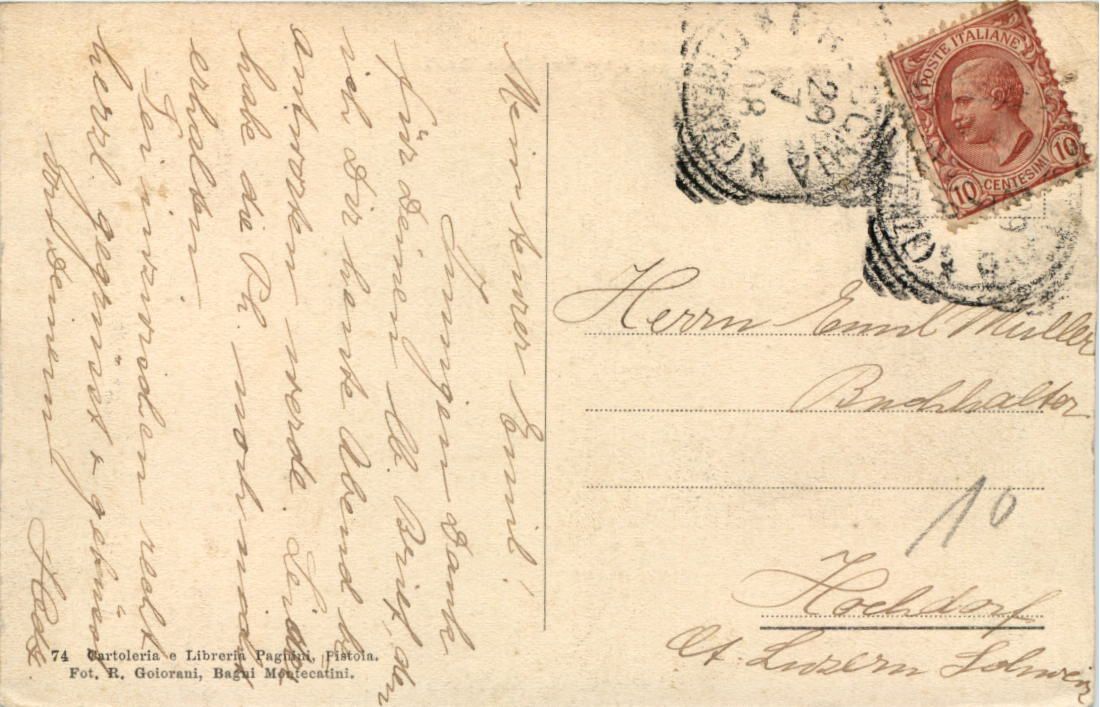 Mein teurer Emil!
Innigen Dank
für Deinen lb. Brief, den
ich Dir heute Abend
antworten werde. Leider
habe die Ph. noch nicht
erhalten.
Sei inzwischen recht
herzl. gegrüsst & geküsst
von Deinem
POSTE ITALIANE
10 CENTESIMI 10
29 7 08
(FIRENZE)
Herrn Emil Müller
Buchhalter
10
Hochdorf
Ct. Luzern Schweiz
74 Cartoleria e Libreria Pagnini, Pistoia.
Fot. R. Goiorani, Bagni Montecatini.